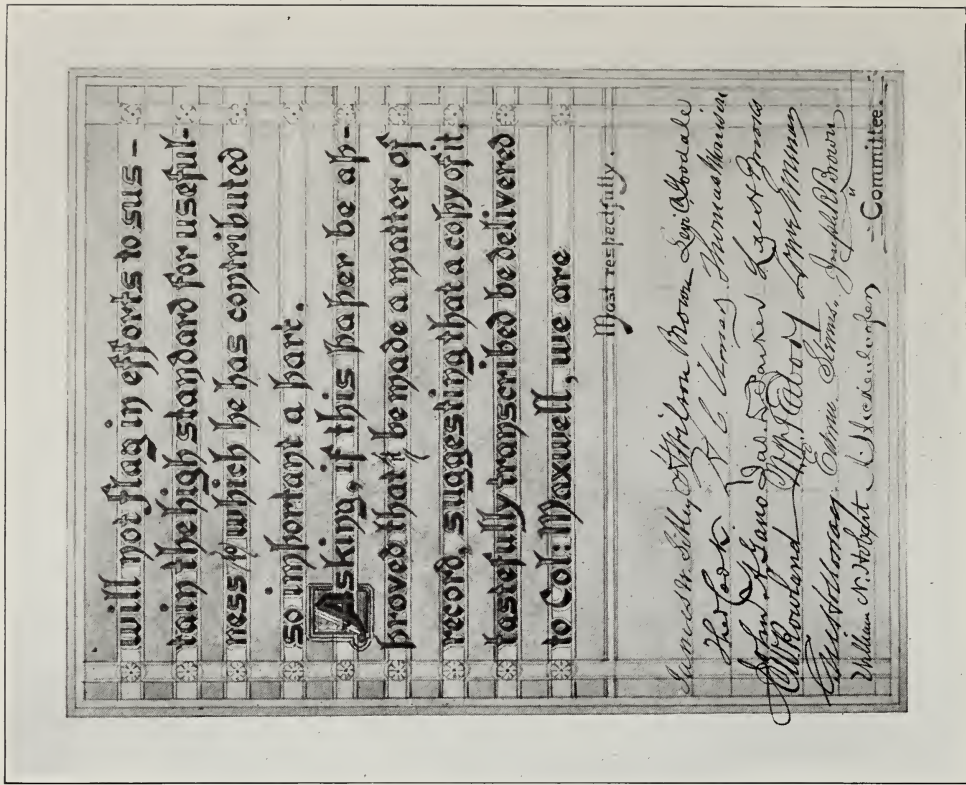 will not flag in efforts to sus-
tain the high standard for useful-
ness to which he has contributed
so important a part.
Asking, if this paper be ap-
proved that it be made a matter of
record, suggesting that a copy of it,
tastefully transcribed be delivered
to Col: Maxwell, we are
Most respectfully.
James W. Sibley Wilson Brown Levi C Goodale
Theo Cook Thomas Morrison
John A Gano Jas. Parker Lewis Brooks
C W Rowland
Gus Simms. Joseph R Brown
William N. Hobart
Committee.